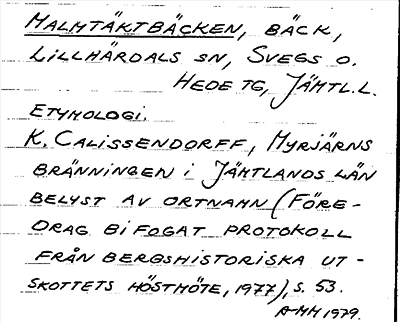 MALMTÄKTBÄCKEN, BÄCK,
LILLHÄRDALS SN, SVEGS O.
HEDE TG, JÄMTL.L.
ETYMOLOGI.
K. CALISSENDORFF, MYRJÄRNS
BRÄNNINGEN I JÄMTLANDS LÄN
BELYST AV ORTNAMN (FÖRE-
DRAG BIFOGAT PROTOKOLL
FRÅN BERGSHISTORISKA UT-
SKOTTETS HÖSTMÖTE, 1977), S. 53.
A-MH 1979.